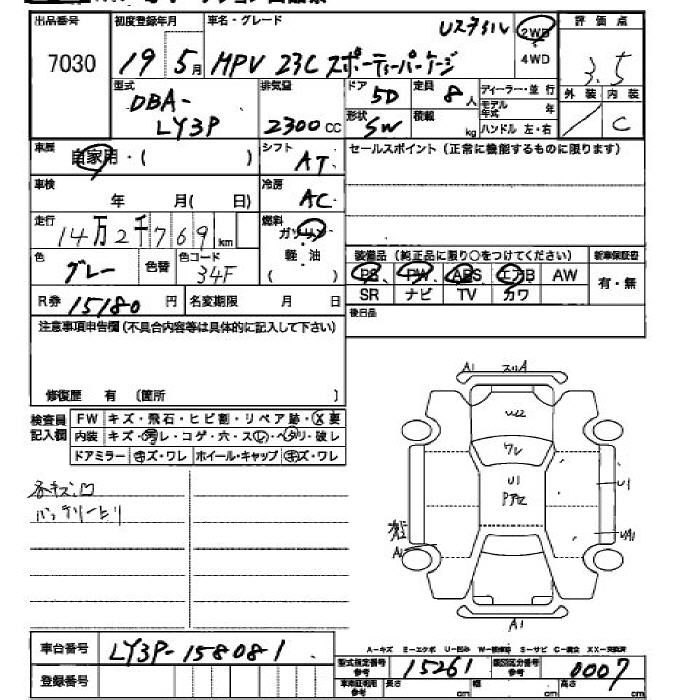 出品番号 初度登録年月 車名・グレード 2WD 評価点
7030 19 5月 MPV 23C スポーティーパッケージ 4WD 3.5
型式 排気量 ドア 5D 定員 8人 ディーラー・並行 外装 内装
DBA-LY3P 2300CC 形状 SW 積載 kg モデル年式 年 ハンドル 左・右 / C
車歴 自家用・( ) シフト AT セールスポイント (正常に機能するものに限ります)
車検 年 月( 日) 冷房 AC
走行 14万2千769km 燃料 ガソリン 軽・油 ( )
色 グレー 色替 色コード 34F 装備品 (純正品に限り○をつけてください) 新車保証書
PS PW ABS エアB AW 有・無
R券 15180円 名変期限 月 日 SR ナビ TV カワ
注意事項申告欄 (不具合内容等は具体的に記入して下さい) 後日品
修復歴 有 (箇所 )
検査員記入欄 FW キズ・飛石・ヒビ割・リペア跡・X要
内装 キズ・汚レ・コゲ・穴・スレ・ヘタリ・破レ
ドアミラー キズ・ワレ ホイール・キャップ キズ・ワレ
各キズ、凹
バッテリー上り
A1 スリA
U2
ワレ
U1
U1
UA1
A1
A1
A-キズ E-エクボ U-凹み W-補修跡 S-サビ C-腐食 XX-交換済
車台番号 LY3P-158081
型式指定番号 参考 15261 類別区分番号 参考 0007
登録番号 車庫証明用参考 長さ cm 幅 cm 高さ cm